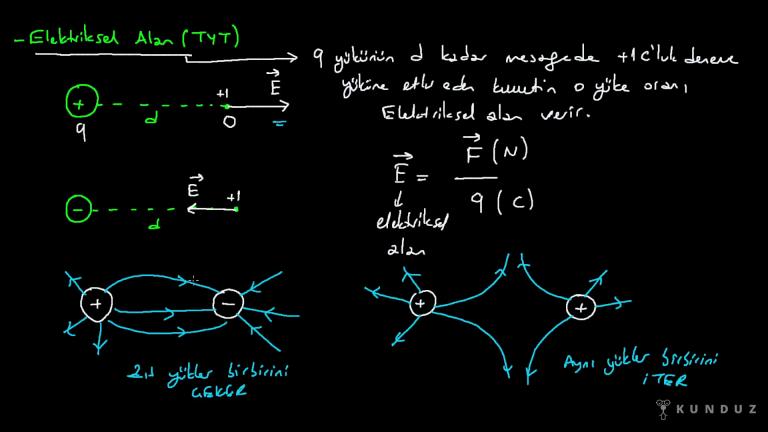 - Elektriksel Alan (TYT)
q yükünün d kadar mesafede +1 C'luk deneme
yüküne etki eden kuvvetin o yüke oranı
Elektriksel alan verir.
+ d +1 E
q O =
E = F (N)
q (C)
elektriksel
alan
- d E +1
+ - + +
Zıt yükler birbirini
ÇEKER
Aynı yükler birbirini
İTER
KUNDUZ